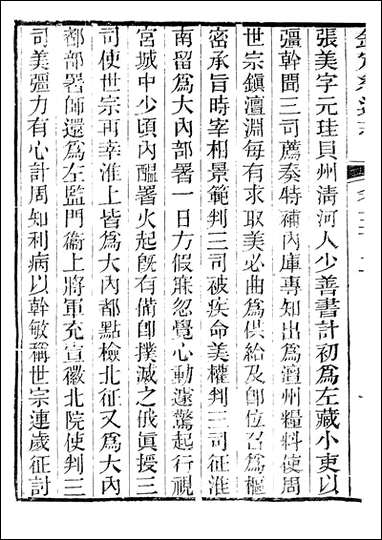 張美字元珪貝州清河人少善書計初爲左藏小吏以
彊幹聞三司薦奏特補內庫專知出爲澶州糧料使周
世宗鎮澶淵每有求取美必曲爲供給及卽位召爲樞
密承旨時宰相景範判三司被疾命美權判三司征淮
南留爲大內部署一日方假寐忽覺心動遽驚起行視
宮城中少頃內醞署火起旣有備卽撲滅之俄眞授三
司使世宗再幸淮上皆爲大內都點檢北征又爲大內
都部署師還爲左監門衞上將軍充宣徽北院使判三
司美彊力有心計周知利病以幹敏稱世宗連歲征討